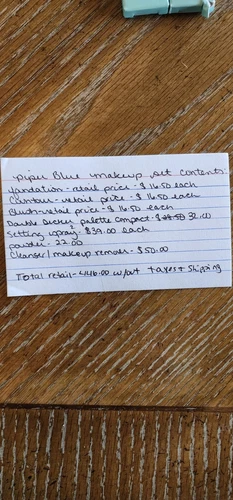 Piper Blue makeup set contents:
Foundation - retail price - $16.50 each
Contour - retail price - $16.50 each
Blush - retail price - $16.50 each
Double decker palette compact - $ 32.00
Setting spray - $39.00 each
powder - 22.00
Cleanser/makeup remover - $50.00
Total retail - 446.00 w/out taxes + shipping